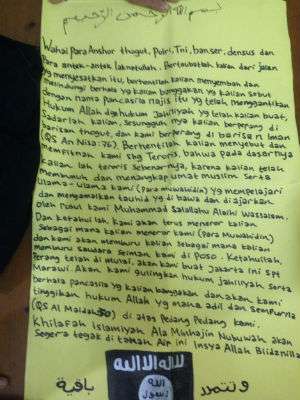 بسم الله الرحمن الرحيم
Wahai Para Anshor thogut, Polri, Tni, banser, densus dan
Para antek-antek laknatullah. Bertaubatlah kalian dari jalan
yg menyesatkan itu, berhentilah kalian menyembah dan
melindungi berhala yg kalian banggakan yg kalian sebut
dengan nama pancasila najis itu yg telah menggantikan
Hukum Allah dgn hukum Jahiliyah yg telah kalian buat,
Sadarlah kalian, Sesungguh nya kalian berperang di
barisan thogut, dan kami berperang di barisan Iman
(QS An Nisa: 76). Berhentilah kalian menyebut dan
memfitnah kami sbg Teroris, bahwa pada dasarnya
kalian lah teroris sebenarnya, karena kalian telah
membunuh dan menangkap umat muslim serta
Ulama-Ulama kami (Para muwahidin) yg mempelajari
dan mengamalkan tauhid yg di bawa dan di ajarkan
oleh Nabi kami Muhammad Salallahu Alaihi Wassalam.
Dan ketahuilah, kami akan terus meneror kalian
Sebagai mana kalian meneror kami (Para muwahidin)
dan kami akan memburu kalian sebagai mana kalian
memburu Saudara Seiman kami di Poso. Ketahuilah,
Perang telah di mulai, akan kami buat Jakarta ini spt
Marawi. Akan kami gulingkan hukum jahiliyah serta
berhala pancasila yg kalian banggakan dan akan kami
tinggikan hukum Allah yg maha adil dan Sempurna
(QS Al Maidah: 50) di atas Pedang Pedang kami.
Khilafah Islamiyah Ala Minhajin Nubuwah akan
Segera tegak di tanah Air ini Insya Allah Biidznillah
لا اله الا الله
الله
رسول
باقية وتتمدد